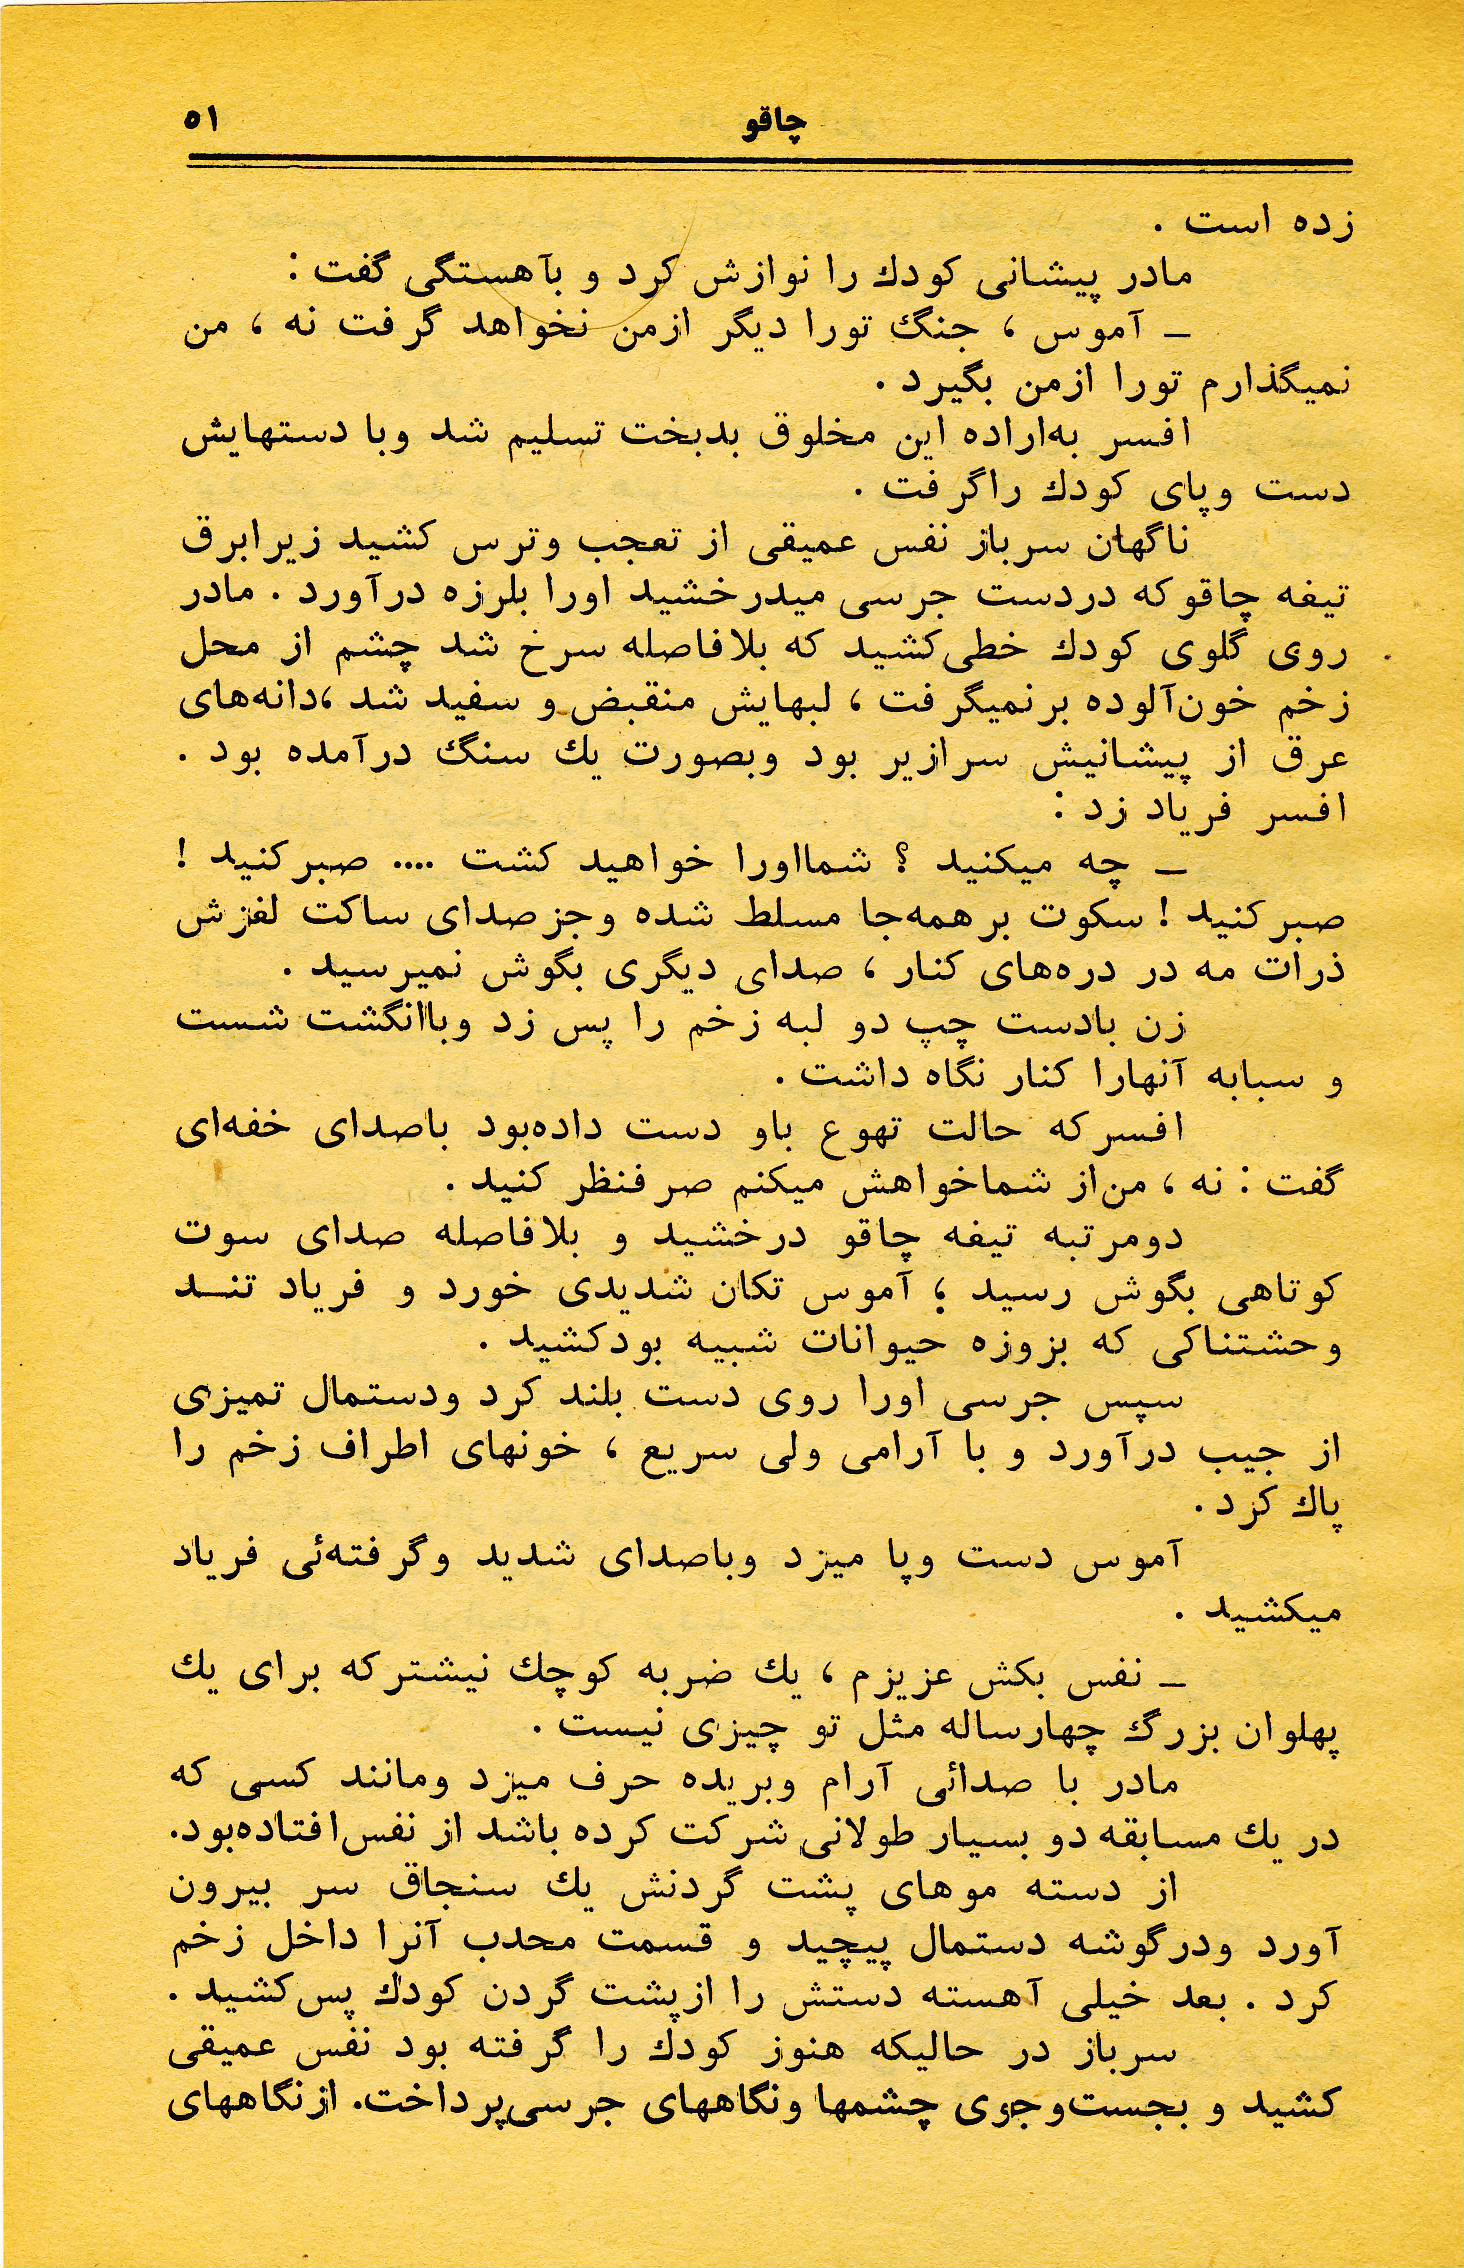 چاقو ۵۱
زده است .
مادر پیشانی کودك را نوازش کرد و بآهستگی گفت :
ـ آموس ، جنگ تورا دیگر ازمن نخواهد گرفت نه ، من
نمیگذارم تورا ازمن بگیرد .
افسر به‌اراده این مخلوق بدبخت تسلیم شد وبا دستهایش
دست وپای کودك راگرفت .
ناگهان سرباز نفس عمیقی از تعجب وترس کشید زیرابرق
تیغه چاقوکه دردست جرسی میدرخشید اورا بلرزه درآورد . مادر
روی گلوی کودك خطی‌کشید که بلافاصله سرخ شد چشم از محل
زخم خون‌آلوده برنمیگرفت ، لبهایش منقبض و سفید شد ،دانه‌های
عرق از پیشانیش سرازیر بود وبصورت یك سنگ درآمده بود .
افسر فریاد زد :
ـ چه میکنید ؟ شمااورا خواهید کشت .... صبرکنید !
صبرکنید ! سکوت برهمه‌جا مسلط شده وجزصدای ساکت لغزش
ذرات مه در دره‌های کنار ، صدای دیگری بگوش نمیرسید .
زن بادست چپ دو لبه زخم را پس زد وباانگشت شست
و سبابه آنهارا کنار نگاه داشت .
افسرکه حالت تهوع باو دست داده‌بود باصدای خفه‌ای
گفت : نه ، من‌از شماخواهش میکنم صرفنظر کنید .
دومرتبه تیغه چاقو درخشید و بلافاصله صدای سوت
کوتاهی بگوش رسید ؛ آموس تکان شدیدی خورد و فریاد تنـد
وحشتناکی که بزوزه حیوانات شبیه بودکشید .
سپس جرسی اورا روی دست بلند کرد ودستمال تمیزی
از جیب درآورد و با آرامی ولی سریع ، خونهای اطراف زخم را
پاك کرد .
آموس دست وپا میزد وباصدای شدید وگرفته‌ئی فریاد
میکشید .
ـ نفس بکش عزیزم ، یك ضربه کوچك نیشترکه برای یك
پهلوان بزرگ چهارساله مثل تو چیزی نیست .
مادر با صدائی آرام وبریده حرف میزد ومانند کسی که
در یك مسابقه دو بسیار طولانی شرکت کرده باشد از نفس‌افتاده‌بود.
از دسته موهای پشت گردنش یك سنجاق سر بیرون
آورد ودرگوشه دستمال پیچید و قسمت محدب آنرا داخل زخم
کرد . بعد خیلی آهسته دستش را ازپشت گردن کودك پس‌کشید .
سرباز در حالیکه هنوز کودك را گرفته بود نفس عمیقی
کشید و بجست‌وجوی چشمها ونگاههای جرسی‌پرداخت. ازنگاههای